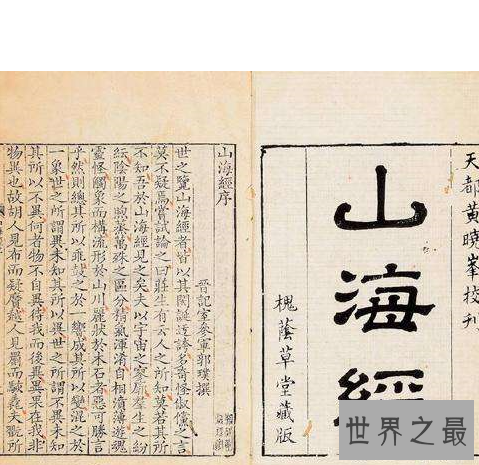 天都黃曉峯校刊
山海經
槐蔭草堂藏版
山海經序
晉記室參軍郭璞撰
世之覽山海經者皆以其閎誕迂誇多奇怪俶儻之言
莫不疑焉嘗試論之曰莊生有云人之所知莫若其所
不知吾於山海經見之矣夫以宇宙之寥廓羣生之紛
紜陰陽之煦蒸萬殊之區分精氣渾淆自相濆薄遊魂
靈怪觸象而構流形於山川麗狀於木石者惡可勝言
乎然則總其所以乖鼓之於一響成其所以變混之於
一象世之所謂異未知其所以異世之所謂不異未知
其所以不異何者物不自異待我而後異異果在我非
物異也故胡人見布而疑黂越人見罽而駭毳夫翫所
世界之最